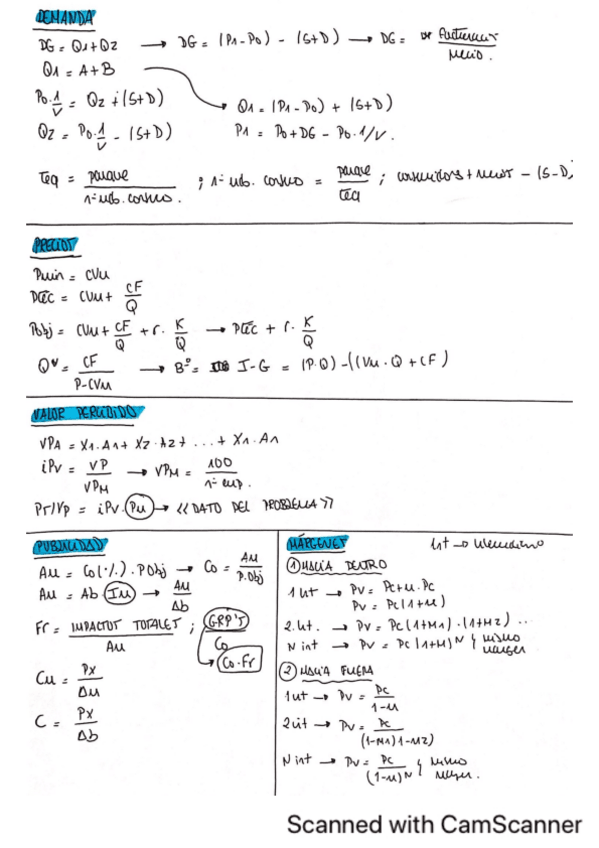 DEMANDA
DG = Q1+Q2 → DG = (P1-P0) - (S+D) → DG =
Q1 = A+B
P0·1/V = Q2 + (S+D)
Q1 = (P1-P0) + (S+D)
Q2 = P0·1/V - (S+D)
P1 = P0+DG - P0·1/V.
Teq = parque / nº ub. consumo. ; nº ub. consumo = parque / Teq ;
PRECIOS
Pmin = CVu
Ptéc = CVu + CF/Q
Pobj = CVu + CF/Q + r · K/Q → Ptéc + r · K/Q
Qᵛ = CF / P-CVu → Bº = I-G = (P·Q) - (CVu·Q + CF)
VALOR PERCIBIDO
VPA = X1·A1 + X2·A2 + ... + Xn·An
iPv = VP / VPM → VPM = 100 / nº emp.
Pr/Vp = iPv·Pu → << DATO DEL PROBLEMA >>
PUBLICIDAD
Au = Co(%)·P.Obj → Co = Au / P.Obj
Au = Ab·Iu → Au / Ab
Fr = IMPACTOS TOTALES / Au ; GRP's
Co
Co·Fr
Cu = Px / Au
C = Px / Ab
MÁRGENES
Int → Intermediario
① HACIA DENTRO
1 int → Pv = Pc+M·Pc
Pv = Pc(1+M)
2 int. → Pv = Pc(1+M1)·(1+M2) ..
N int → Pv = Pc(1+M)ᴺ } mismo margen
② HACIA FUERA
1 int → Pv = Pc / 1-M
2 int → Pv = Pc / (1-M1)(1-M2)
N int → Pv = Pc / (1-M)ᴺ } mismo margen.
Scanned with CamScanner